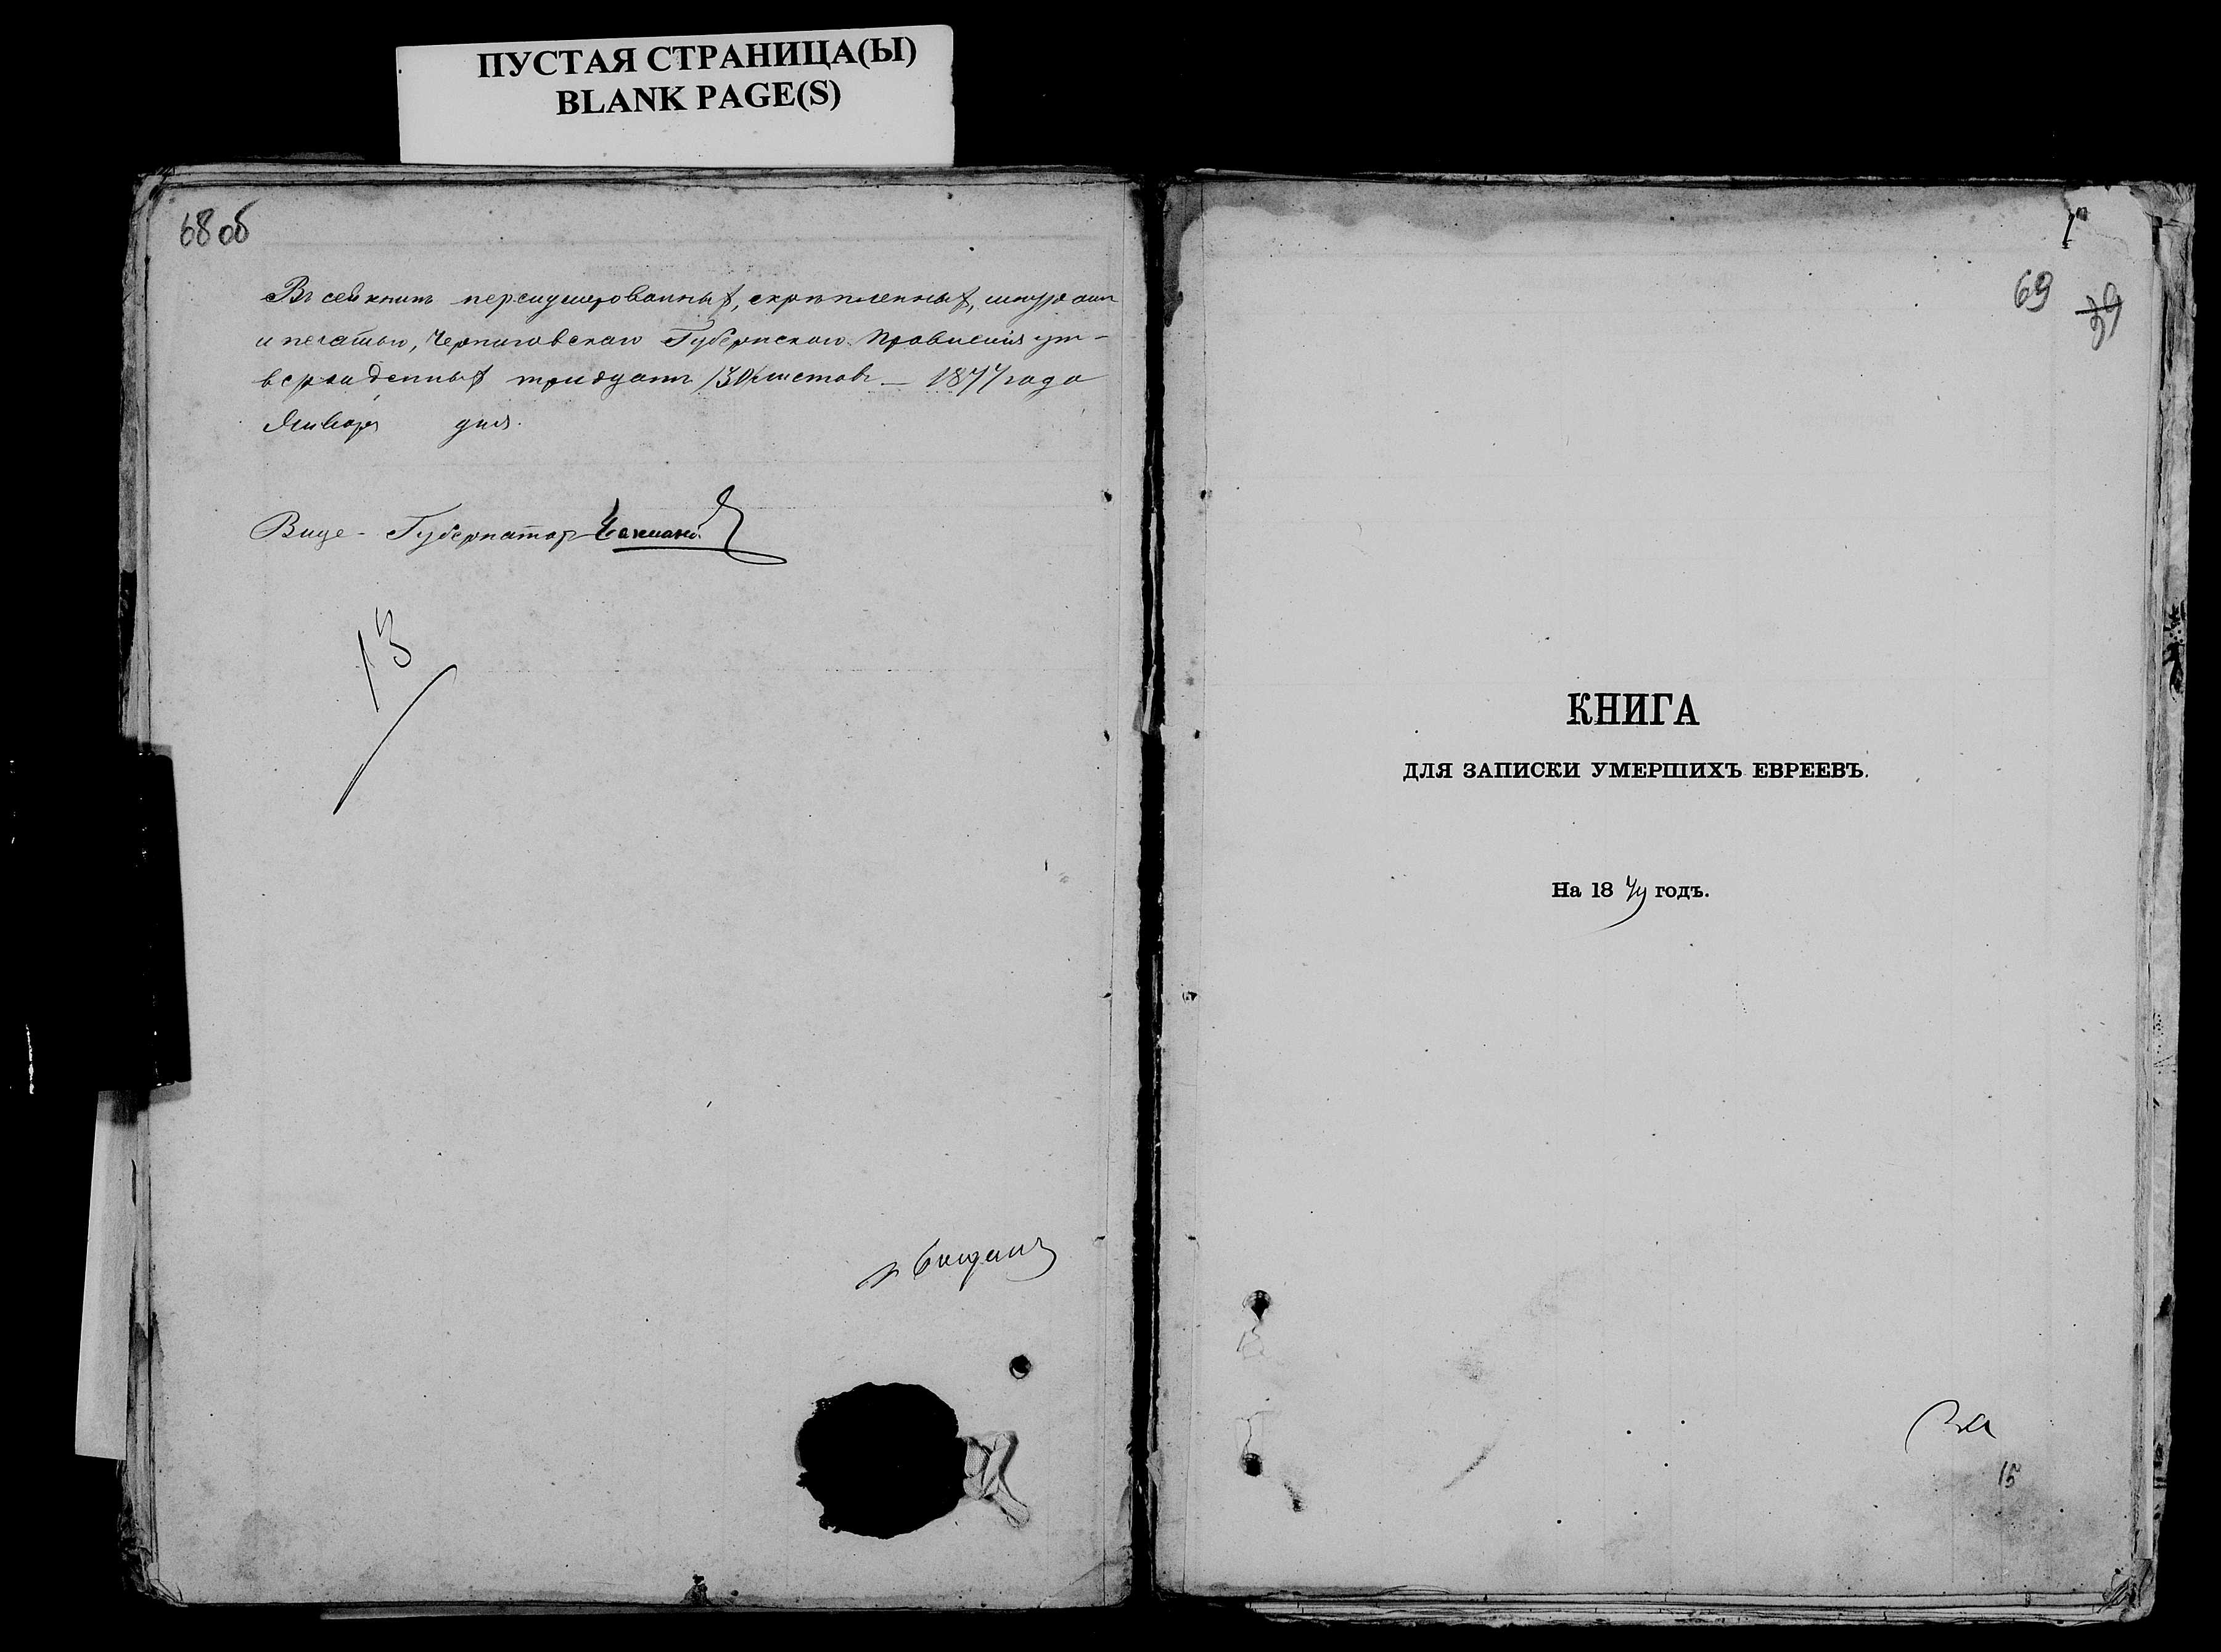 ПУСТАЯ СТРАНИЦА(Ы)
BLANK PAGE(S)
68 об
Въ сей книгѣ перенумерованныхъ, скрѣпленныхъ, шнуромъ
и печатью, Черниговскаго Губернскаго Правленія ут-
вержденныхъ тридцать /30/ листовъ — 1877 года
Января дня.
Вице-Губернаторъ
13
1
69
39
КНИГА
ДЛЯ ЗАПИСКИ УМЕРШИХЪ ЕВРЕЕВЪ.
На 1877 годъ.
15